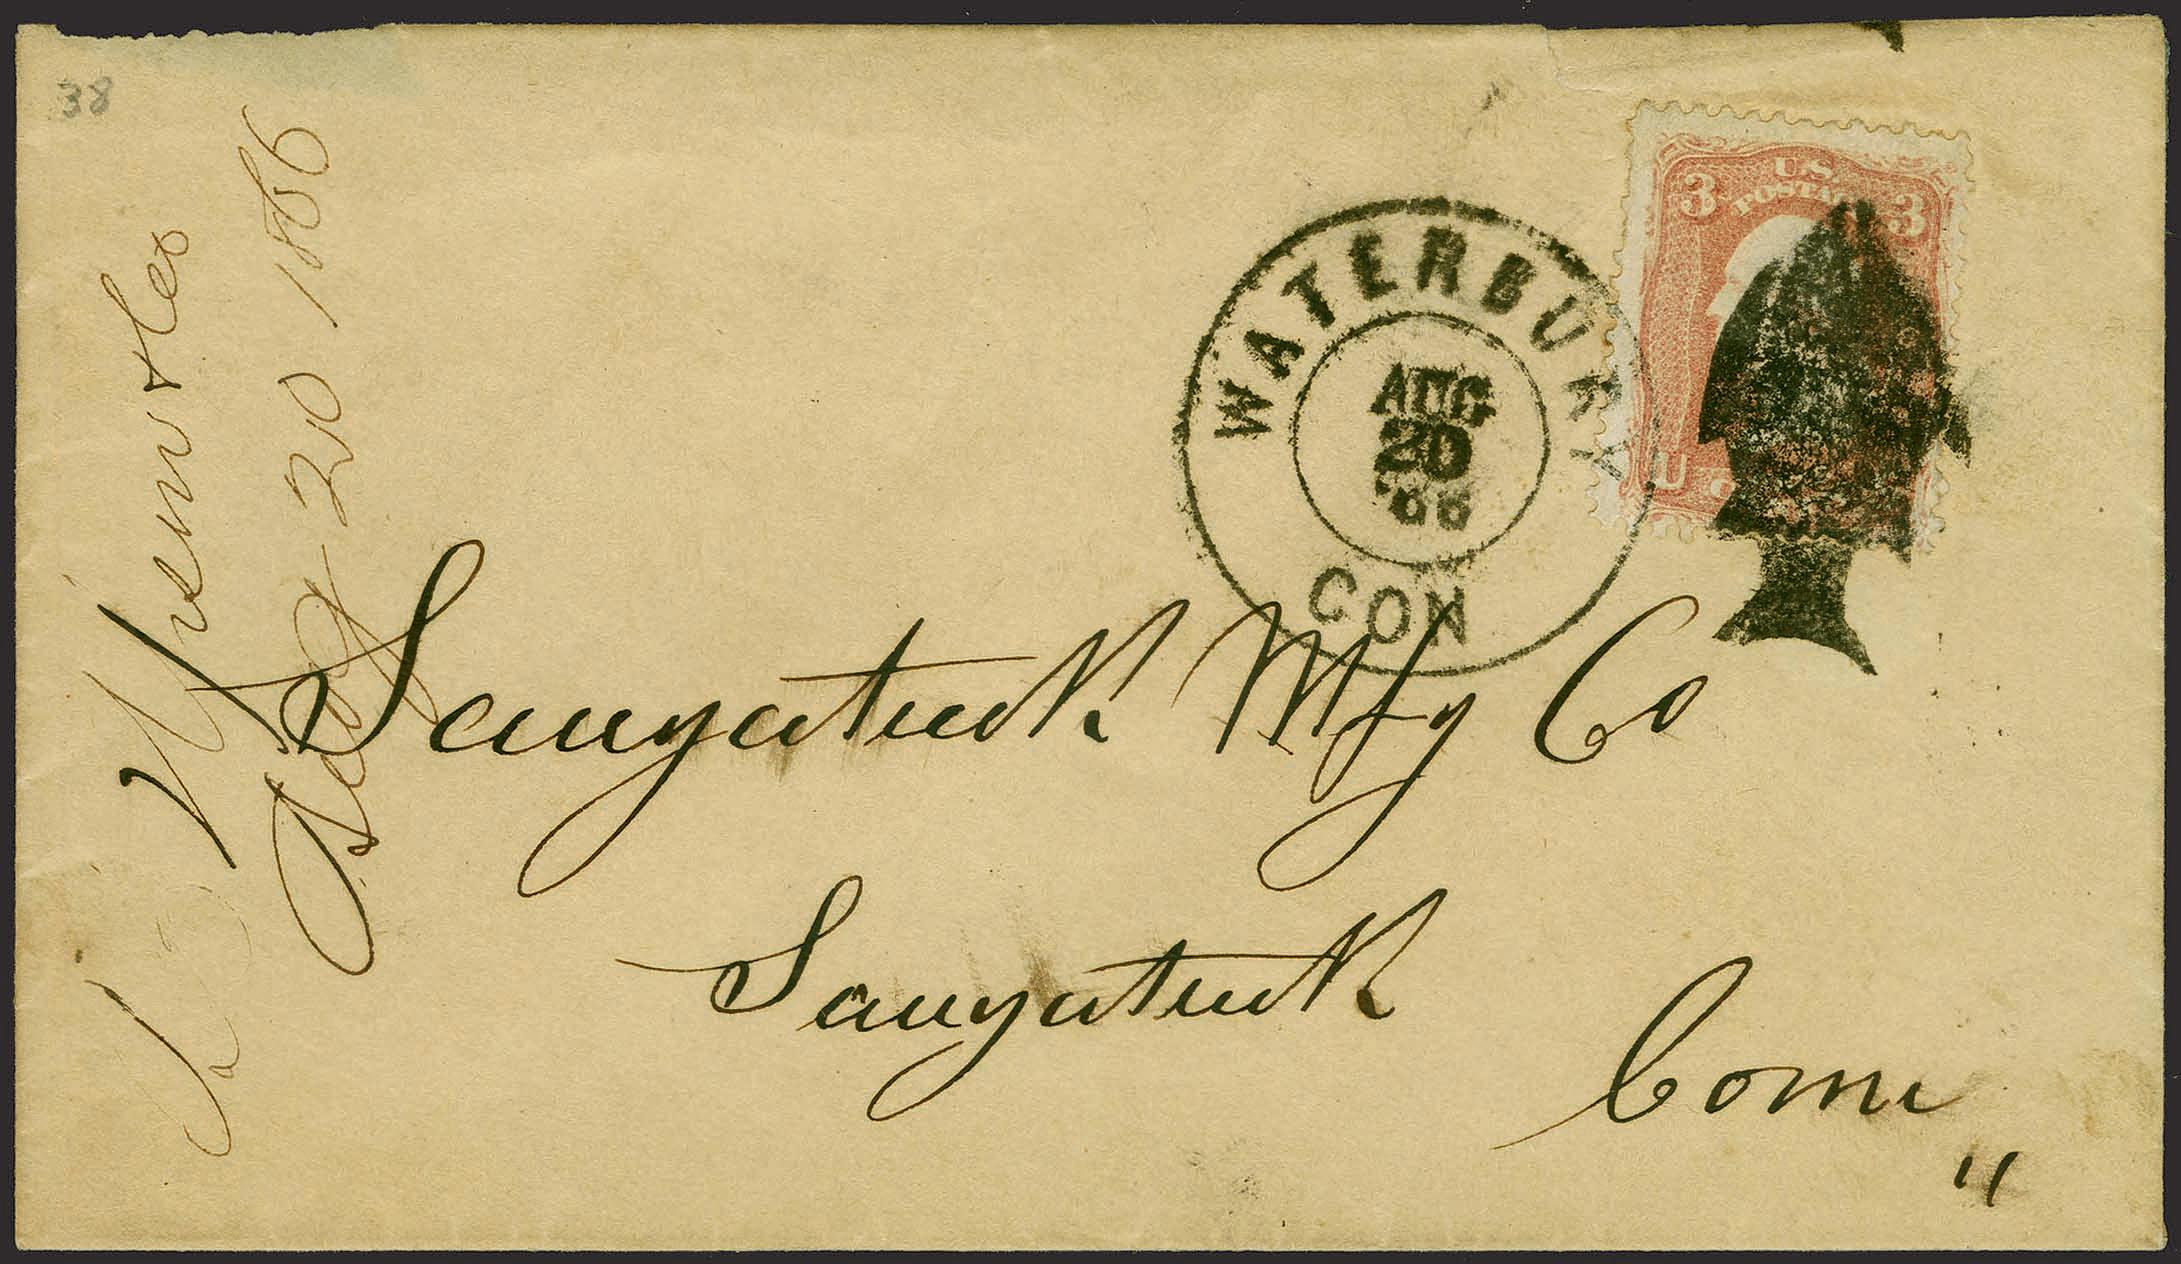 38
Aug 20 1866
U.S.
POSTAGE
3 3
U
WATERBURY
AUG
20
'66
CON
Saugatuck Mfg Co
Saugatuck
Conn
"